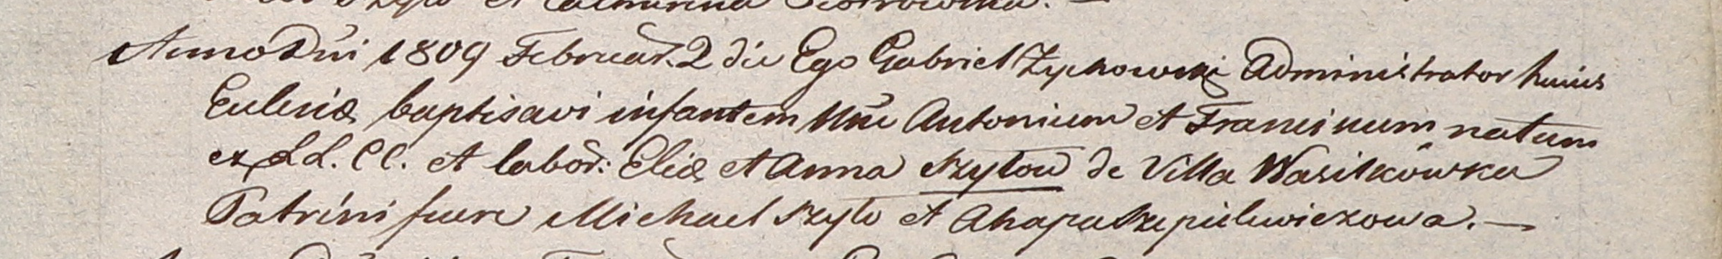 et Catharina
Anno Dni 1809 Februar. 2 die Ego Gabriel Żychowski Administrator huius
Eccleiæ baptisavi infantem Nne Antonium et Franciscum natum
ex LL. CC. et labor: Eliæ et Anna Szyłow de Villa Wasilkowka
Patrini fuere Michael Szyło et Ahapa Szepielewiczowa. —